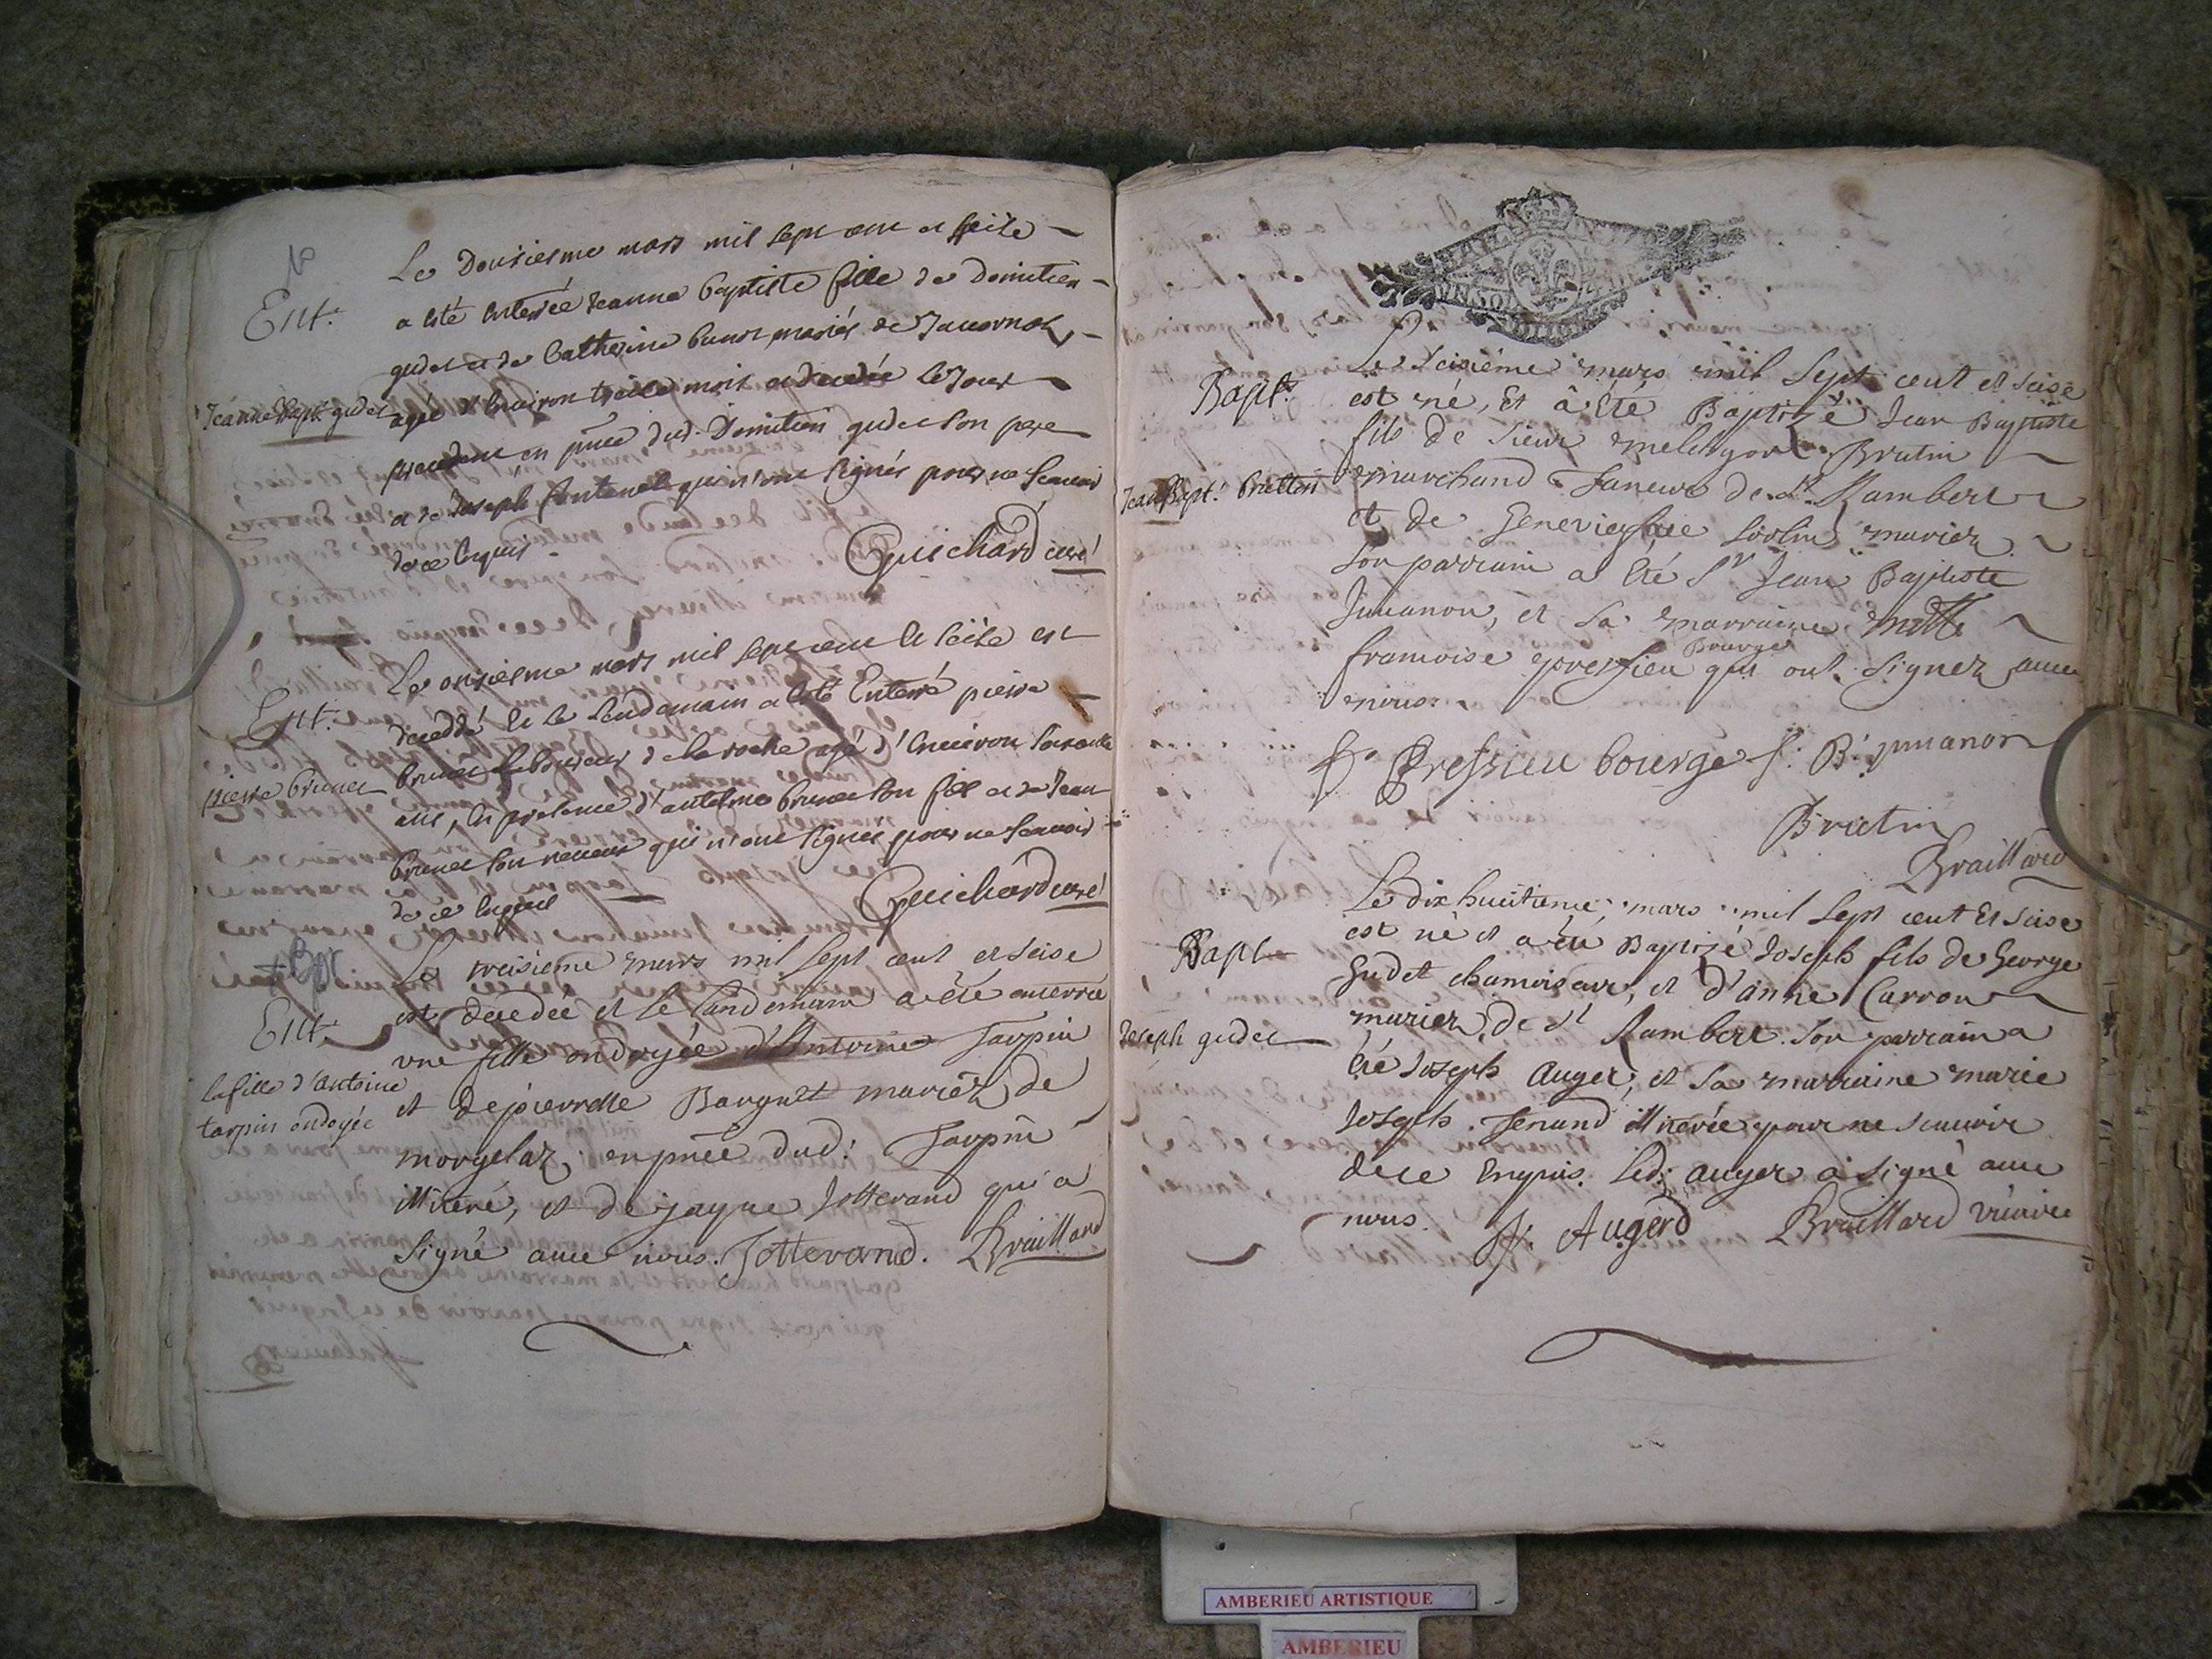 Ent.
Jeanne Bapt. gudet
Le Dousiesme mars mil sept cent et seize
a esté enterrée Jeanne baptiste fille de Domitien
gudet et de Catherine mariés de
agée d'environ treize mois et decedée le Jour
precedent en pnce dud. Domitien gudet son pere
et de Joseph qui n'ont signés pour ne scavoir
de ce enquis
Guichard curé
Ent.
pierre brunet
Le onsiesme mars mil sept cent et seize est
decedé et le lendemain a esté Enterré pierre
brunet laboureur de la roche agé d'environ soixante
ans, en presence d'antelme brunet son fils et de Jean
brunet son neveu qui n'ont signés pour ne scavoir
de ce enquis
Guichard curé
Ent.
la fille d'antoine
tarpin ondoyée
Le treisieme mars mil sept cent et seise
est decedée et le landemain a été enterrée
une fille ondoyée d'Antoine Tarpin
et de pierrette mariéz de
morgelaz en pnce dud: Tarpin
illiteré, et de jayne Jotterand qui a
signé avec nous. Jotterand. Braillard
Bapt.
Jean Bapt.
Le seisiéme mars mil sept cent et seise
est né, et à été Baptizé Jean Baptiste
fils de sieur melchyor Brutin
marchand Taneur de St Rambert
et de Genevieve mariez
son parrain a été Sr Jean Baptiste
Juuanon, et sa marraine
francoise pressieu Bourge qui ont signez avec
nous.
f. Pressieu bourge J. B. juuanon
Brutin
Braillard
Bapt
Joseph gudet
Le dix huitieme mars mil sept cent et seise
est né et a été Baptizé Joseph fils de George
Gudet chamoiseur, et d'anne Carron
mariez de St Rambert. son parrain a
été Joseph Auger, et sa marraine marie
Joseph Tenand illiterée pour ne scauoir
de ce enquis. led: auger a signé avec
nous. J. Augerd Braillard vicaire
AMBERIEU ARTISTIQUE
AMBERIEU